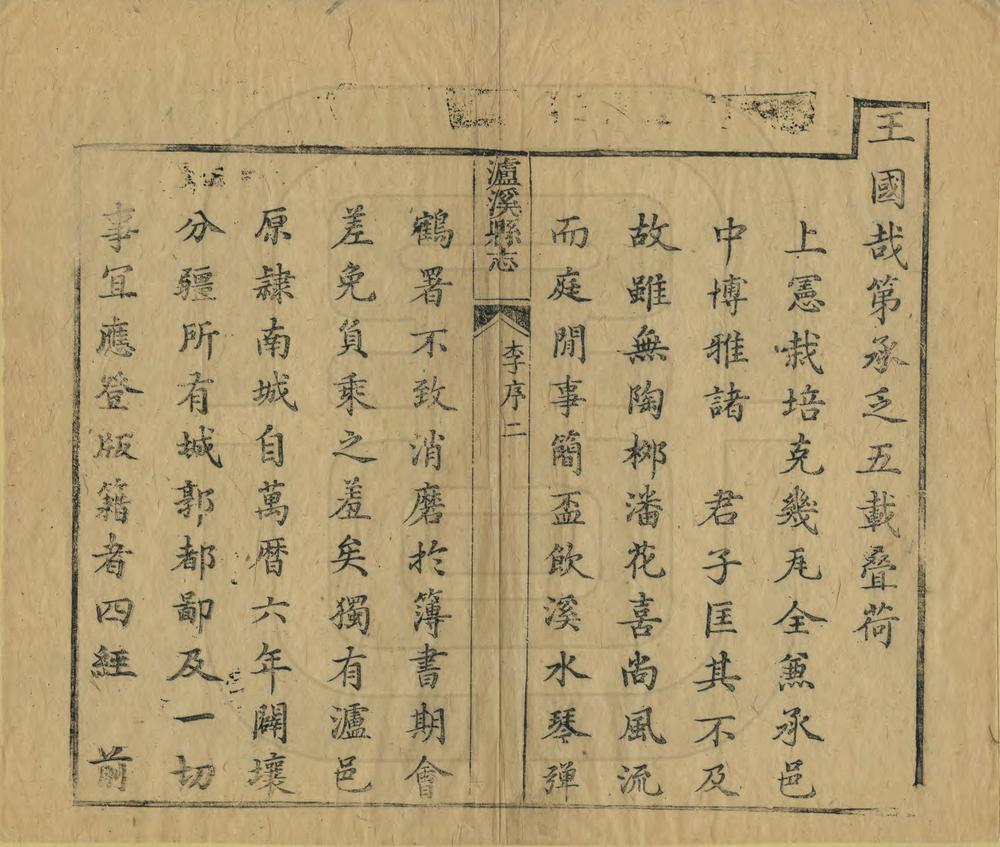 王國哉第承乏五載疊荷
上憲栽培克幾瓦全兼承邑
中博雅諸　君子匡其不及
故雖無陶柳潘花喜尚風流
而庭閒事簡盃飲溪水琴彈
瀘溪縣志
李序二
鶴署不致消磨於簿書期會
差免負乘之羞矣獨有瀘邑
原隸南城自萬曆六年闢壤
分疆所有城郭都鄙及一切
事冝應登版籍者四經　前